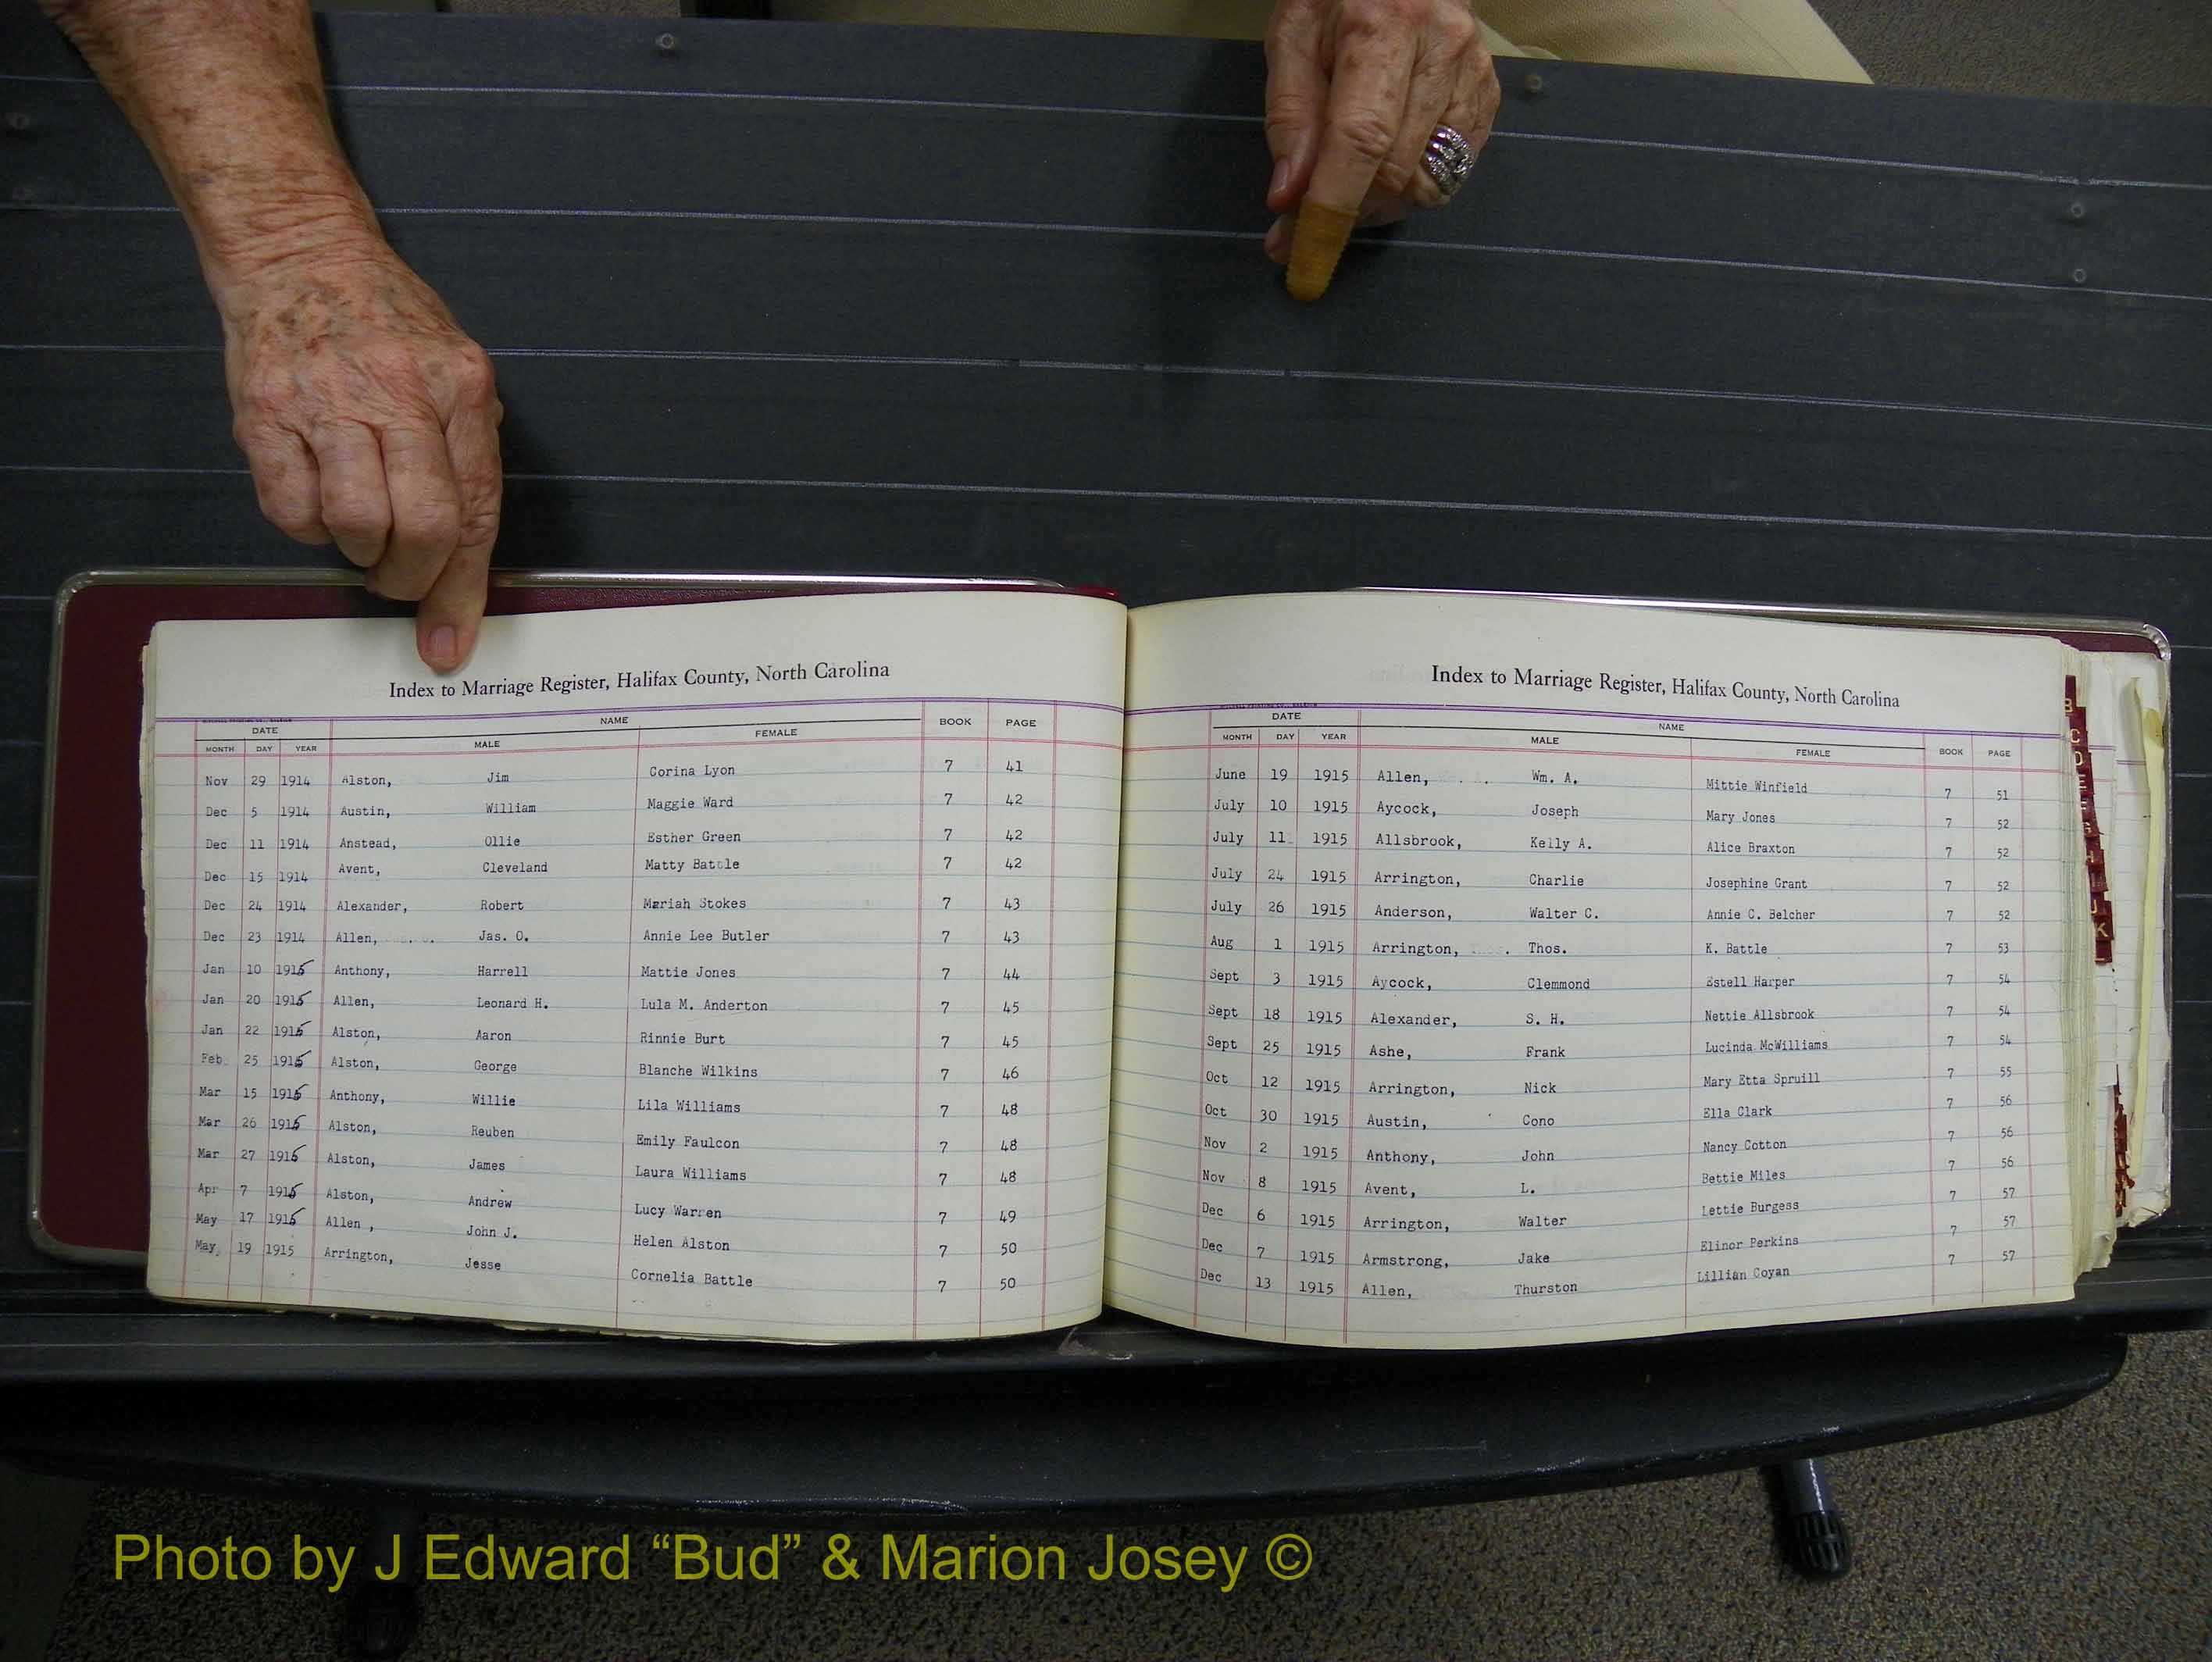 Index to Marriage Register, Halifax County, North Carolina
DATE NAME BOOK PAGE
MONTH DAY YEAR MALE FEMALE
Nov 29 1914 Alston, Jim Corina Lyon 7 41
Dec 5 1914 Austin, William Maggie Ward 7 42
Dec 11 1914 Anstead, Ollie Esther Green 7 42
Dec 15 1914 Avent, Cleveland Matty Battle 7 42
Dec 24 1914 Alexander, Robert Mariah Stokes 7 43
Dec 23 1914 Allen, Jas. O. Annie Lee Butler 7 43
Jan 10 1915 Anthony, Harrell Mattie Jones 7 44
Jan 20 1915 Allen, Leonard H. Lula M. Anderton 7 45
Jan 22 1915 Alston, Aaron Rinnie Burt 7 45
Feb 25 1915 Alston, George Blanche Wilkins 7 46
Mar 15 1915 Anthony, Willie Lila Williams 7 48
Mar 26 1915 Alston, Reuben Emily Faulcon 7 48
Mar 27 1915 Alston, James Laura Williams 7 48
Apr 7 1915 Alston, Andrew Lucy Warren 7 49
May 17 1915 Allen , John J. Helen Alston 7 50
May 19 1915 Arrington, Jesse Cornelia Battle 7 50
Index to Marriage Register, Halifax County, North Carolina
DATE NAME
MONTH DAY YEAR MALE FEMALE BOOK PAGE
June 19 1915 Allen, Wm. A. Mittie Winfield 7 51
July 10 1915 Aycock, Joseph Mary Jones 7 52
July 11 1915 Allsbrook, Kelly A. Alice Braxton 7 52
July 24 1915 Arrington, Charlie Josephine Grant 7 52
July 26 1915 Anderson, Walter C. Annie C. Belcher 7 52
Aug 1 1915 Arrington, Thos. K. Battle 7 53
Sept 3 1915 Aycock, Clemmond Estell Harper 7 54
Sept 18 1915 Alexander, S. H. Nettie Allsbrook 7 54
Sept 25 1915 Ashe, Frank Lucinda McWilliams 7 54
Oct 12 1915 Arrington, Nick Mary Etta Spruill 7 55
Oct 30 1915 Austin, Cono Ella Clark 7 56
Nov 2 1915 Anthony, John Nancy Cotton 7 56
Nov 8 1915 Avent, L. Bettie Miles 7 56
Dec 6 1915 Arrington, Walter Lettie Burgess 7 57
Dec 7 1915 Armstrong, Jake Elinor Perkins 7 57
Dec 13 1915 Allen, Thurston Lillian Coyan 7 57
B
C
D
E
H
J
K
Photo by J Edward “Bud” & Marion Josey ©